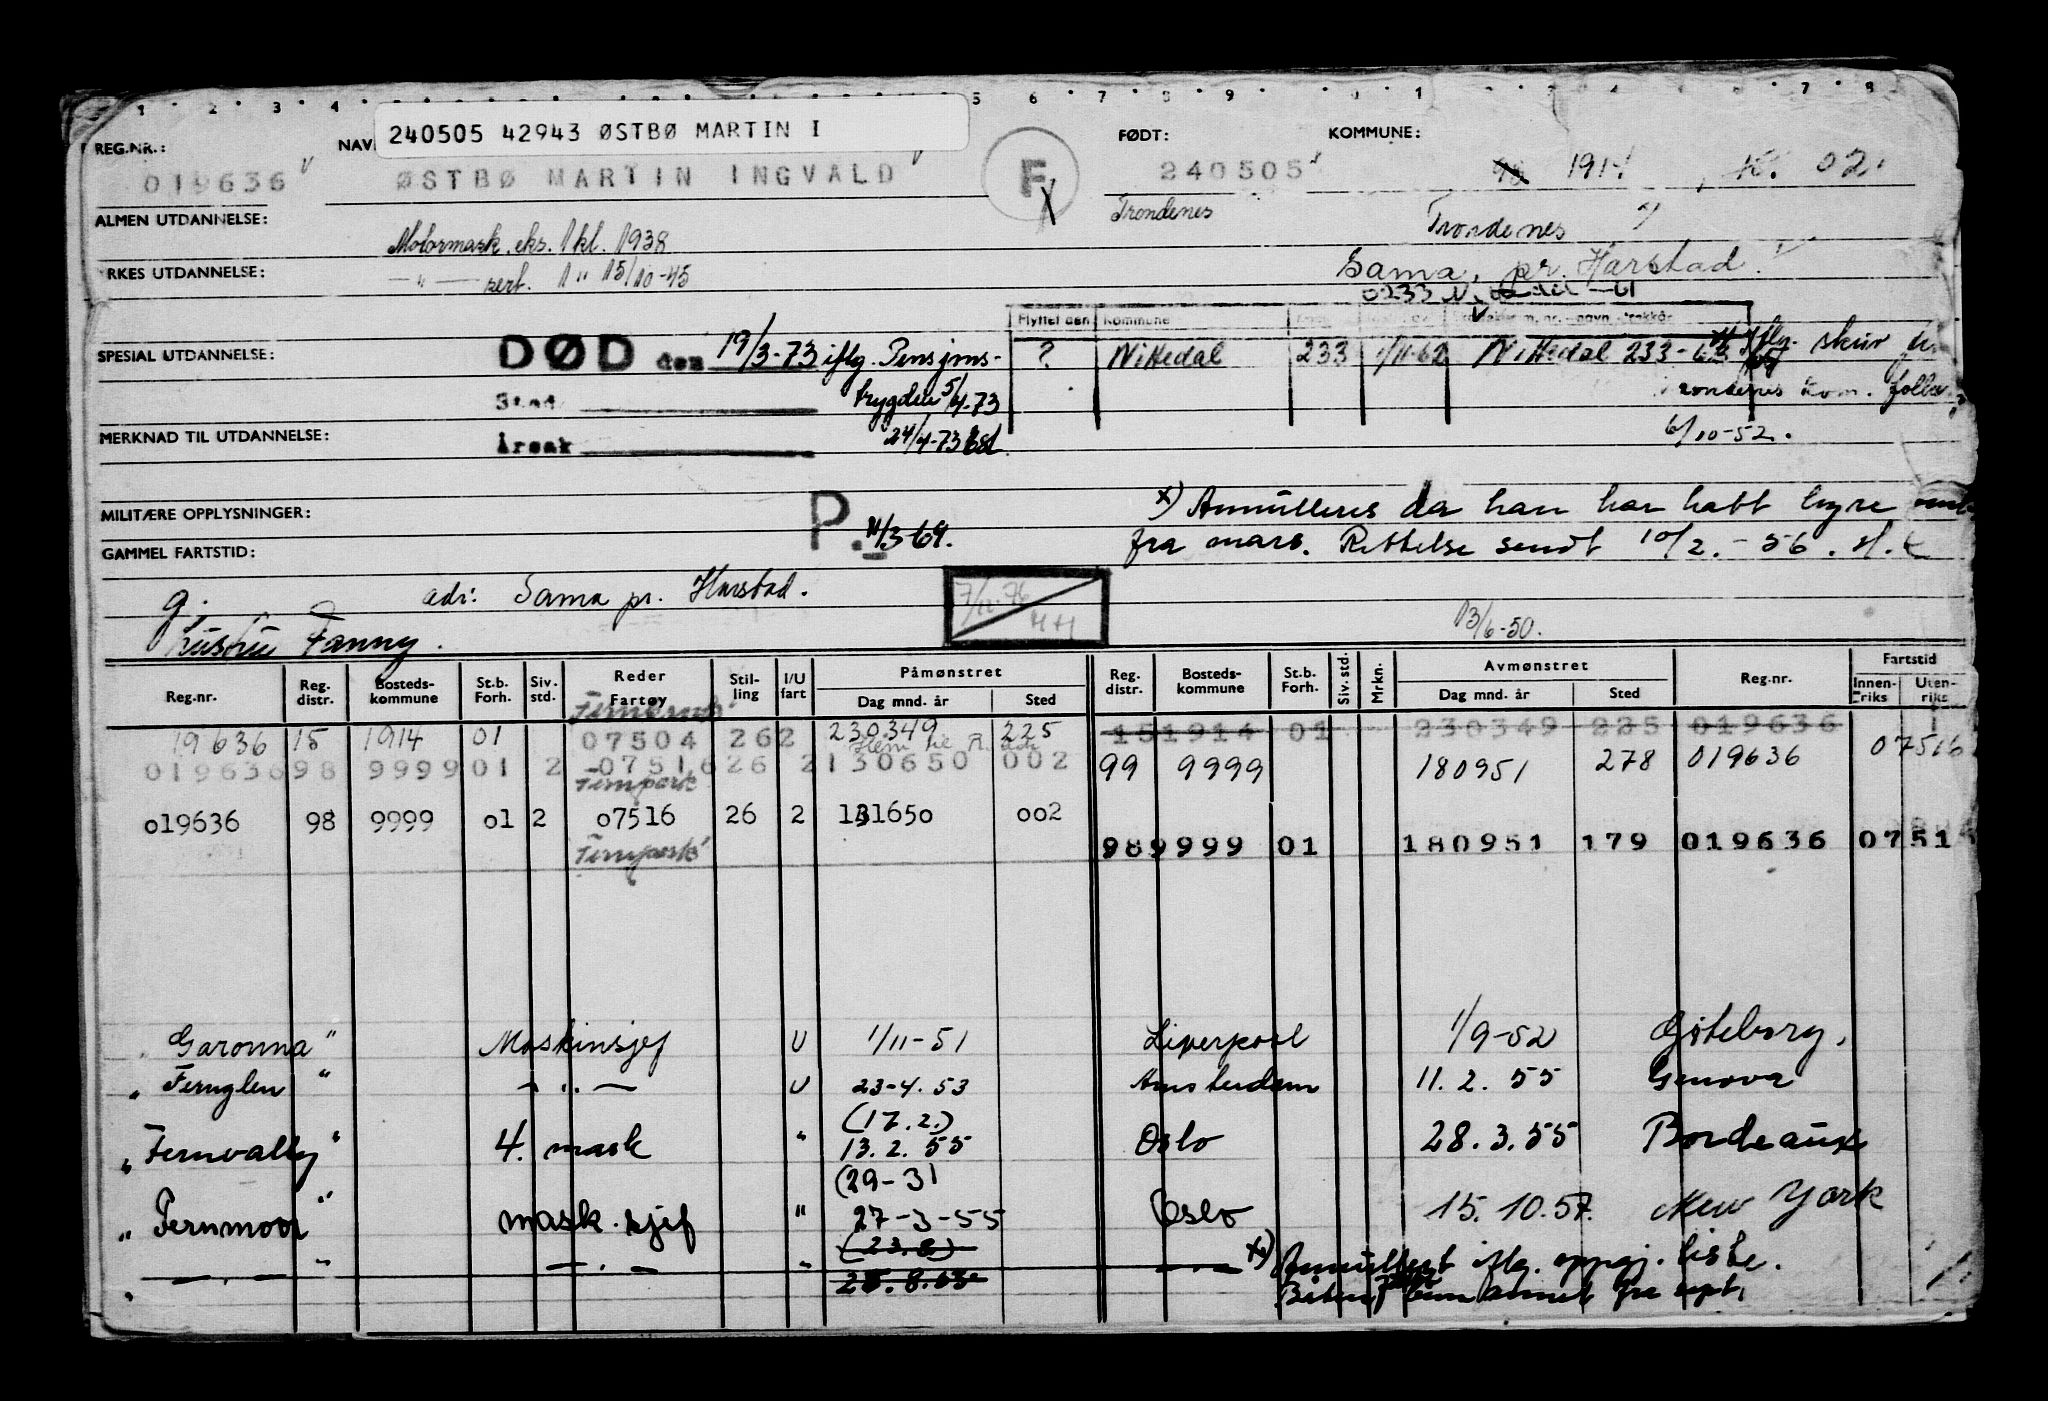 240505 42943 ØSTBØ MARTIN I
REG.NR.: NAV FØDT: KOMMUNE:
019636 ØSTBØ MARTIN INGVALD F 240505 1914 02.
ALMEN UTDANNELSE: Trondenes Trondenes
Motormask. eks. 1 kl. 1938
RKES UTDANNELSE: — " — sert. 1 " 15/10-45
Sama, pr. Harstad.
0233
Flyttet den Kommune
SPESIAL UTDANNELSE: DØD den 19/3-73 iflg. Pensjons-
? Nittedal 233 1/11-62 Nittedal 233- iflg. skriv
Sted trygden 5/4-73
Trondenes kom. folke
MERKNAD TIL UTDANNELSE: Årsak 24/4-73
6/10-52.
MILITÆRE OPPLYSNINGER: P. 11/3-69.
x) Annulleres da han har hatt hyre
fra mars. Rettelse sendt 10/2.-56.
GAMMEL FARTSTID:
g. adr: Sama pr. Harstad. 7/11-76 HH
Hustru Fanny. 13/6-50.
Reg.nr. Reg. distr. Bosteds- kommune St.b. Forh. Siv. std. Reder Fartøy Stil- ling I/U fart Påmønstret Dag mnd. år Sted Reg. distr. Bosteds- kommune St.b. Forh. Siv. std. Mrkn. Avmønstret Dag mnd. år Sted Reg.nr. Fartstid Innen- riks Uten- riks
19636 15 1914 01 07504 262 230349 225 151914 01 230349 225 019636
019636 98 9999 01 2 07516 26 2 130650 002 99 9999 180951 278 019636 07516
Fernpark
019636 98 9999 01 2 07516 26 2 131650 002
Fernpark 98 9999 01 180951 179 019636 0751
"Garonna" Maskinsjef U 1/11-51 Liverpool 1/9-52 Gøteborg.
"Fernglen" — " — U 23-4.53 Amsterdam 11.2.55 Genova
(17.2.)
"Fernvalley" 4. mask " 13.2.55 Oslo 28.3.55 Bordeaux
(29-3)
"Fernmoor" mask.sjef " 27-3-55 Oslo 15.10.57. New York
(23.8)
— " — — " — " 25.8. — " — x) Annullert iflg. oppgj. liste.
fra sept.